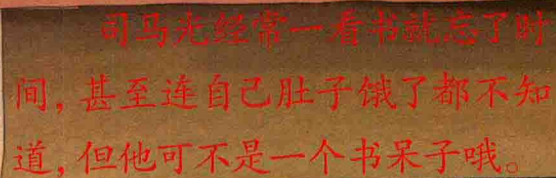 司马光经常一看书就忘了时
间，甚至连自己肚子饿了都不知
道，但他可不是一个书呆子哦。